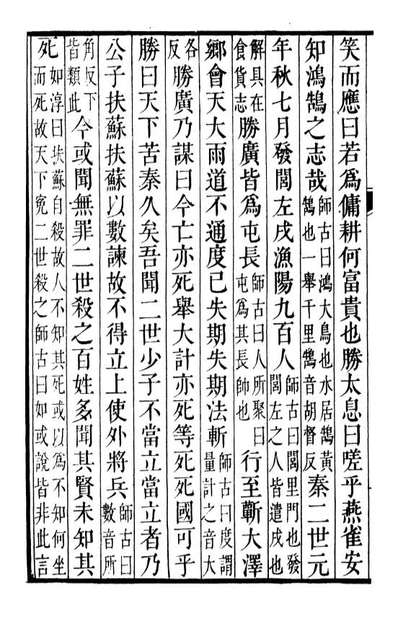 笑而應曰若爲傭耕何富貴也勝太息曰嗟乎燕雀安
知鴻鵠之志哉師古曰鴻大鳥也水居鵠黃鵠也一舉千里鵠音胡督反秦二世元
年秋七月發閭左戍漁陽九百人師古曰閭里門也發閭左之人皆遣戍也
解具在食貨志勝廣皆爲屯長師古曰人所聚曰屯爲其長帥也行至蘄大澤
鄉會天大雨道不通度已失期失期法斬師古曰度謂量計之音大
各反勝廣乃謀曰今亡亦死舉大計亦死等死死國可乎
勝曰天下苦秦久矣吾聞二世少子不當立當立者乃
公子扶蘇扶蘇以數諫故不得立上使外將兵師古曰數音所
角反下皆類此今或聞無罪二世殺之百姓多聞其賢未知其
死如淳曰扶蘇自殺故人不知其死或以爲不知何坐而死故天下冤二世殺之師古曰如或說皆非此言